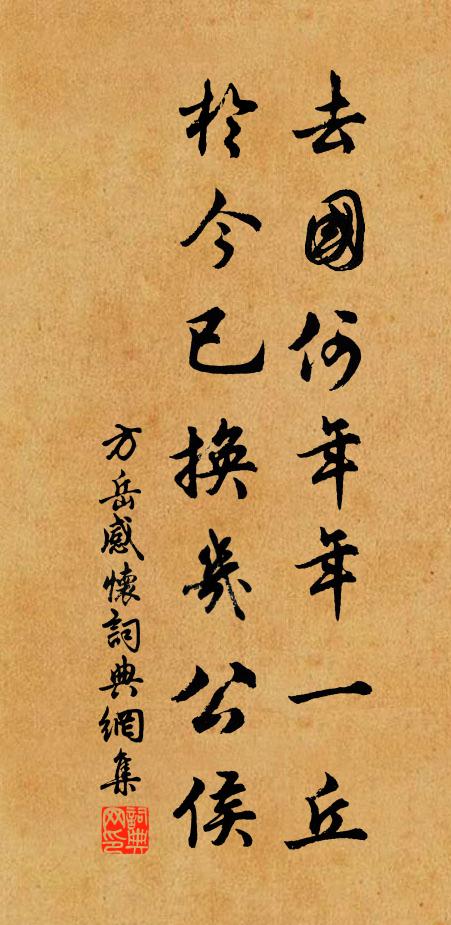 去國何年年一丘
於今已換幾公侯
方岳感懷詞典網集
詞典網印